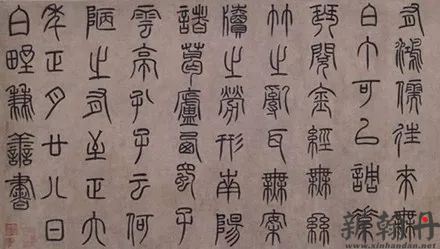 有鴻儒往來無
白丁可以調素
琴閱金經無絲
竹之亂耳無案
牘之勞形南陽
諸葛廬西蜀子
雲亭孔子云何
陋之有至正六
年正月廿八日
白野兼善書
www.xinhandan.net